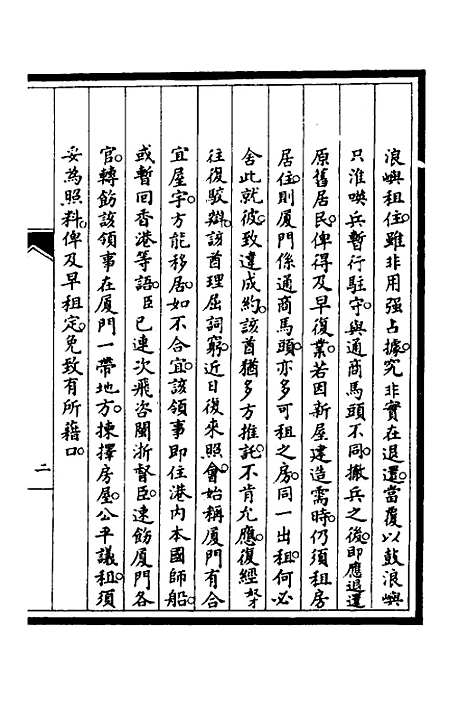 浪嶼租住。雖非用强占據。究非實在退還。當覆以鼓浪嶼
只准㗲兵暫行駐守。與通商馬頭不同。撤兵之後。即應退還
原舊居民。俾得及早復業。若因新屋建造需時。仍須租房
居住。則厦門係通商馬頭。亦多可租之房。同一出租。何必
舍此就彼。致違成約。該酋猶多方推託。不肯允應。復經奴才
往復駮辯。該酋理屈詞窮。近日復來照會。始稱厦門有合
宜屋宇。方能移居。如不合宜。該領事即住港内本國師船。
或暫回香港等語。臣已連次飛咨閩浙督臣。速飭厦門各
官。轉飭該領事在厦門一帶地方。揀擇房屋。公平議租。須
妥為照料。俾及早租定。免致有所藉口。
二